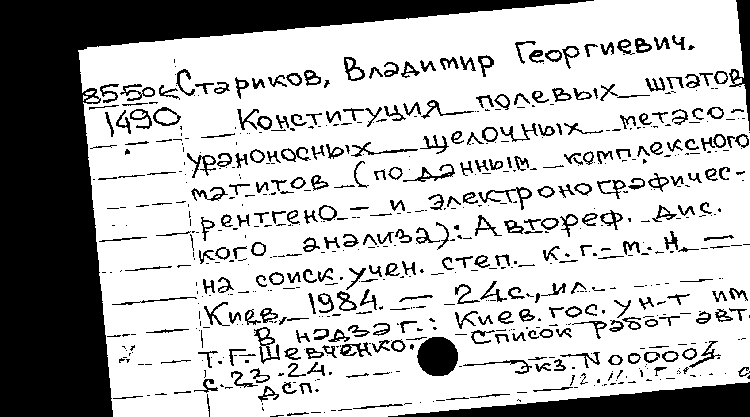 85-50с Стариков, Владимир Георгиевич.
1490 Конституция полевых шпатов
ураноносных щелочных метасо-
матитов (по данным комплексного
рентгено- и электронографичес-
кого анализа): Автореф. дис.
на соиск. учен. степ. к.г.-м.н. —
Киев, 1984. — 24с., ил.
В надзаг.: Киев. гос. ун-т им
Т.Г. Шевченко. Список работ авт.
с. 23-24.
Экз. N 000004
ДСП.